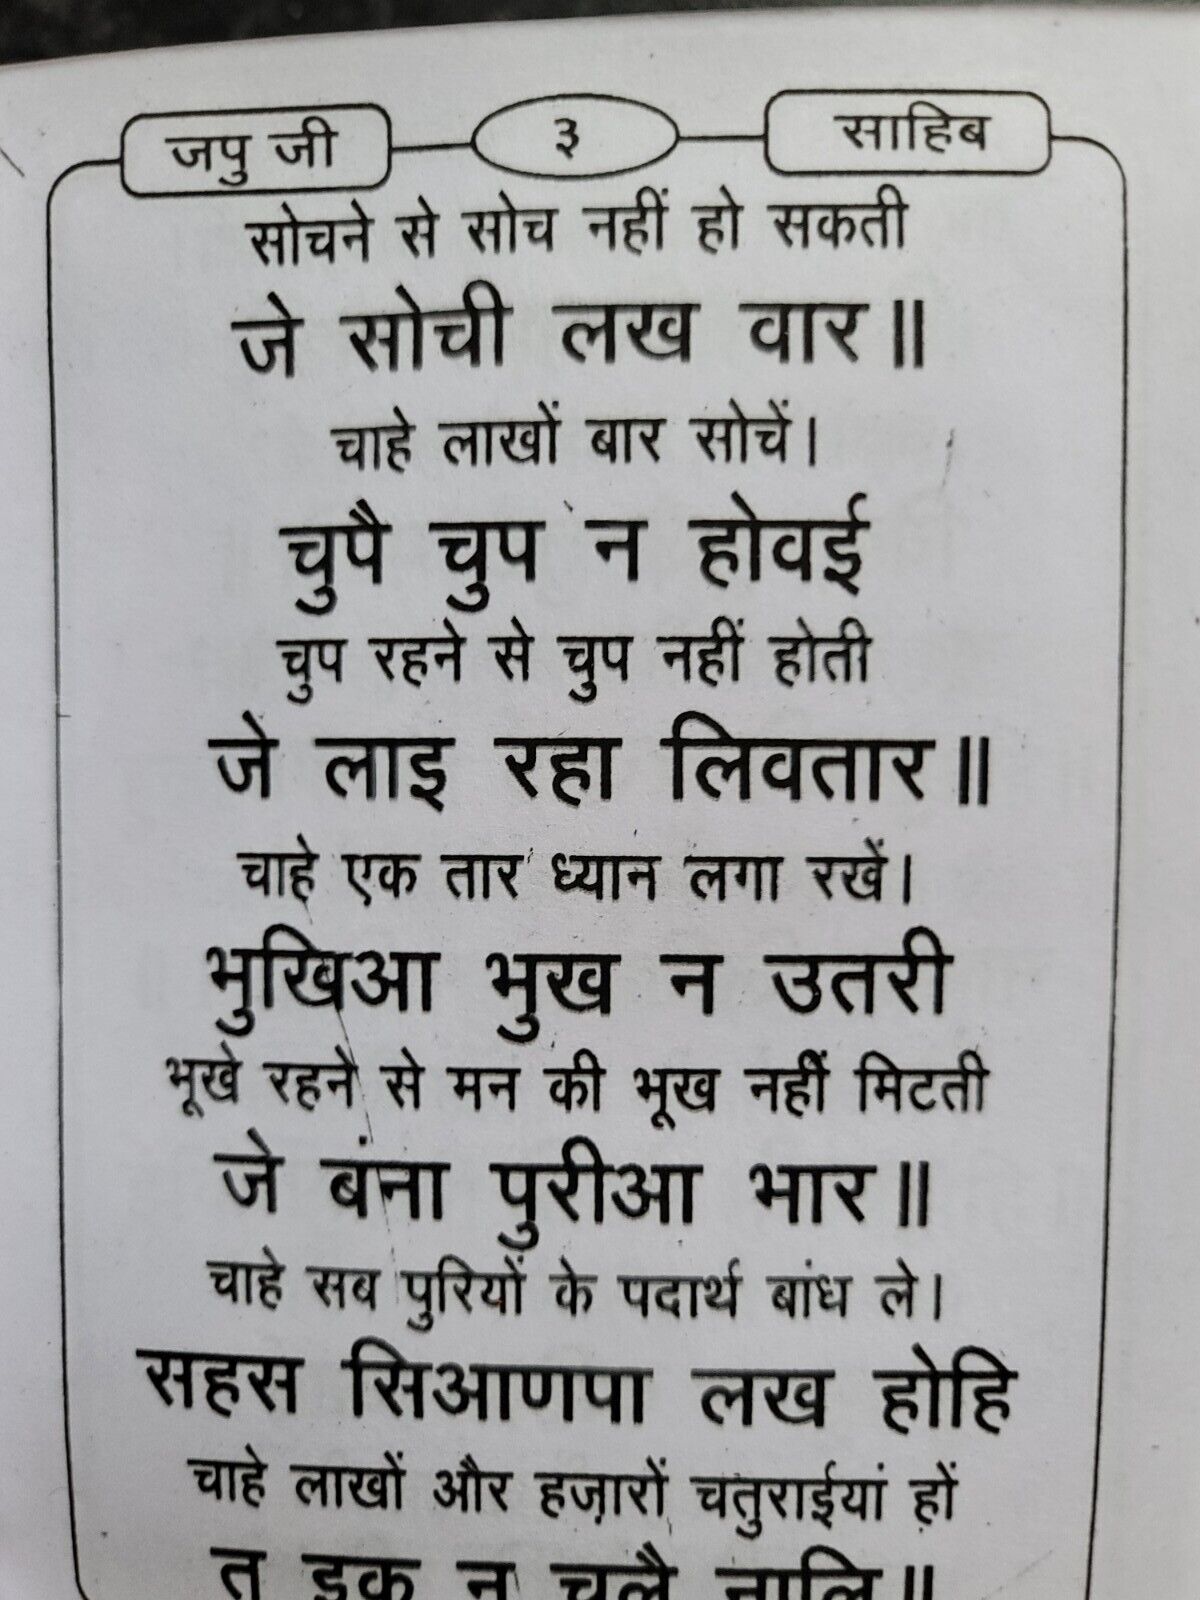 जपु जी ३ साहिब
सोचने से सोच नहीं हो सकती
जे सोची लख वार॥
चाहे लाखों बार सोचें।
चुपै चुप न होवई
चुप रहने से चुप नहीं होती
जे लाइ रहा लिवतार॥
चाहे एक तार ध्यान लगा रखें।
भुखिआ भुख न उतरी
भूखे रहने से मन की भूख नहीं मिटती
जे बंना पुरीआ भार॥
चाहे सब पुरियों के पदार्थ बांध ले।
सहस सिआणपा लख होहि
चाहे लाखों और हज़ारों चतुराईयां हों
त इक न चलै नालि॥